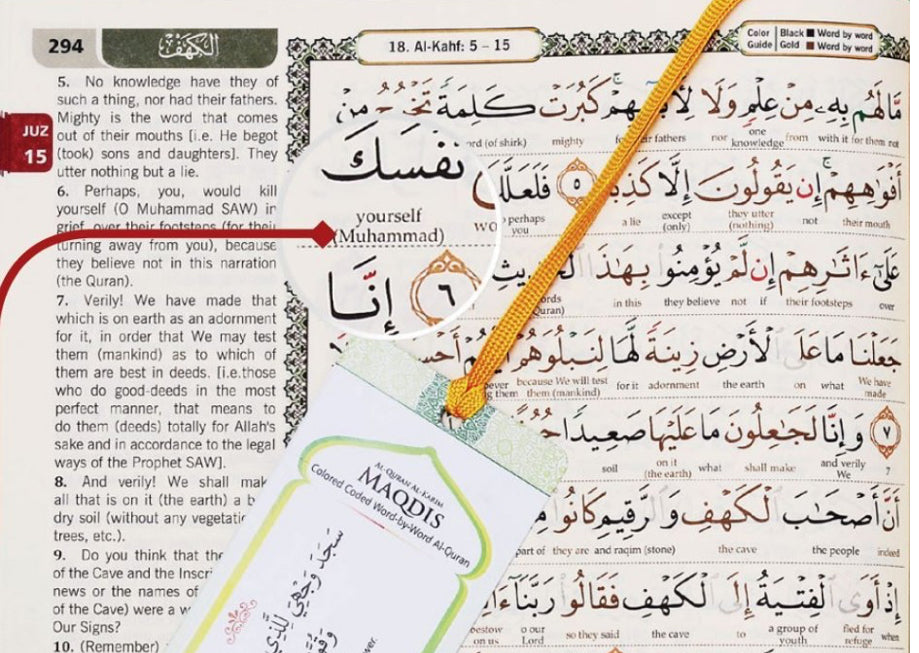 294
الكهف
18. Al-Kahf: 5 – 15
Color Guide
Black ■ Word by word
Gold ■ Word by word
JUZ
15
5. No knowledge have they of
such a thing, nor had their fathers.
Mighty is the word that comes
out of their mouths [i.e. He begot
(took) sons and daughters]. They
utter nothing but a lie.
6. Perhaps, you, would kill
yourself (O Muhammad SAW) in
grief, over their footsteps (for their
turning away from you), because
they believe not in this narration
(the Quran).
7. Verily! We have made that
which is on earth as an adornment
for it, in order that We may test
them (mankind) as to which of
them are best in deeds. [i.e.those
who do good-deeds in the most
perfect manner, that means to
do them (deeds) totally for Allah's
sake and in accordance to the legal
ways of the Prophet SAW].
8. And verily! We shall make
all that is on it (the earth) a b
dry soil (without any vegetatio
trees, etc.).
9. Do you think that the
of the Cave and the Inscri
news or the names of
of the Cave) were a w
Our Signs?
10. (Remember)
مَّا لَهُم بِهِۦ مِنْ عِلْمٍ وَلَا لِأٓبَآئِهِمْ كَبُرَتْ كَلِمَةً تَخْرُجُ مِنْ
rd (of shirk) mighty for their fathers nor one knowledge from with it for them not
أَفْوَٰهِهِمْ إِن يَقُولُونَ إِلَّا كَذِبًا ٥ فَلَعَلَّكَ
wo o perhaps you a lie except (only) they utter (nothing) not their mouth
نَفْسَكَ
yourself
(Muhammad)
عَلَىٰٓ ءَاثَٰرِهِمْ إِن لَّمْ يُؤْمِنُوا۟ بِهَٰذَا ٱلْحَدِيثِ
ords Quran) in this they believe not if their footsteps over
٦ إِنَّا
جَعَلْنَا مَا عَلَى ٱلْأَرْضِ زِينَةً لَّهَا لِنَبْلُوَهُمْ أَيُّهُمْ أَحْسَ
ever g them because We will test them (mankind) for it adornment the earth on what We have made
٧ وَإِنَّا لَجَٰعِلُونَ مَا عَلَيْهَا صَعِيدًا
soil on it (the earth) what shall make and verily We 7
أَنَّ أَصْحَٰبَ ٱلْكَهْفِ وَٱلرَّقِيمِ كَانُوا۟
part of they are and raqim (stone) the cave the people indeed
إِذْ أَوَى ٱلْفِتْيَةُ إِلَى ٱلْكَهْفِ فَقَالُوا۟ رَبَّنَآ
bestow on us o our Lord so they said the cave to a group of youth fled for refuge when
AL-QURAN AL-KARIM
MAQDIS
Colored Coded Word-by-Word Al-Quran
سَجَدَ وَجْهِيَ لِلَّذِي